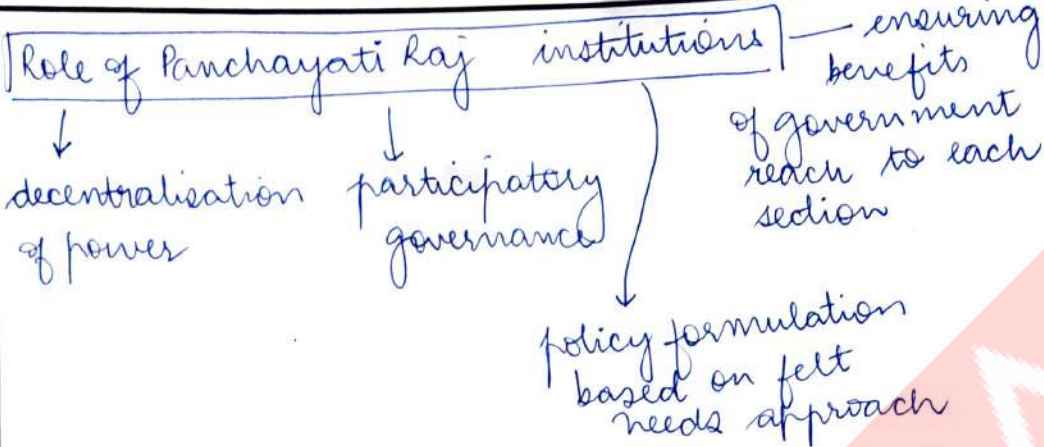 Role of Panchayati Raj institutions
— ensuring
benefits
of government
reach to each
section
decentralisation
of power
participatory
governance
policy formulation
based on felt
needs approach